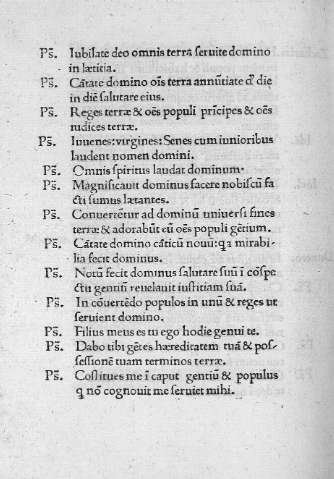 Ps̄. Iubilate deo omnis terra seruite domino
in lætitia.
Ps̄. Cātate domino oīs terra annūtiate đ die
in diē salutare eius.
Ps̄. Reges terræ & oēs populi prīcipes & oēs
iudices terræ.
Ps̄. Iuuenes: uirgines: Senes cum iunioribus
laudent nomen domini.
Ps̄. Omnis spiritus laudat dominum.
Ps̄. Magnificauit dominus facere nobiscū fa
cti sumus lætantes.
Ps̄. Conuertētur ad dominū uniuersi fines
terræ & adorabūt eū oēs populi gētium.
Ps̄. Cātate domino cāticū nouū: qa mirabi-
lia fecit dominus.
Ps̄. Notū fecit dominus salutare suū ī cōspe
ctu gentiū reuelauit iustitiam suā.
Ps̄. In cōuertēdo populos in unū & reges ut
seruient domino.
Ps̄. Filius meus es tu ego hodie genui te.
Ps̄. Dabo tibi gētes hæreditatem tuā & pos-
sessionē tuam terminos terræ.
Ps̄. Cōstitues me ī caput gentiū & populus
q̄ nō cognouit me seruiet mihi.